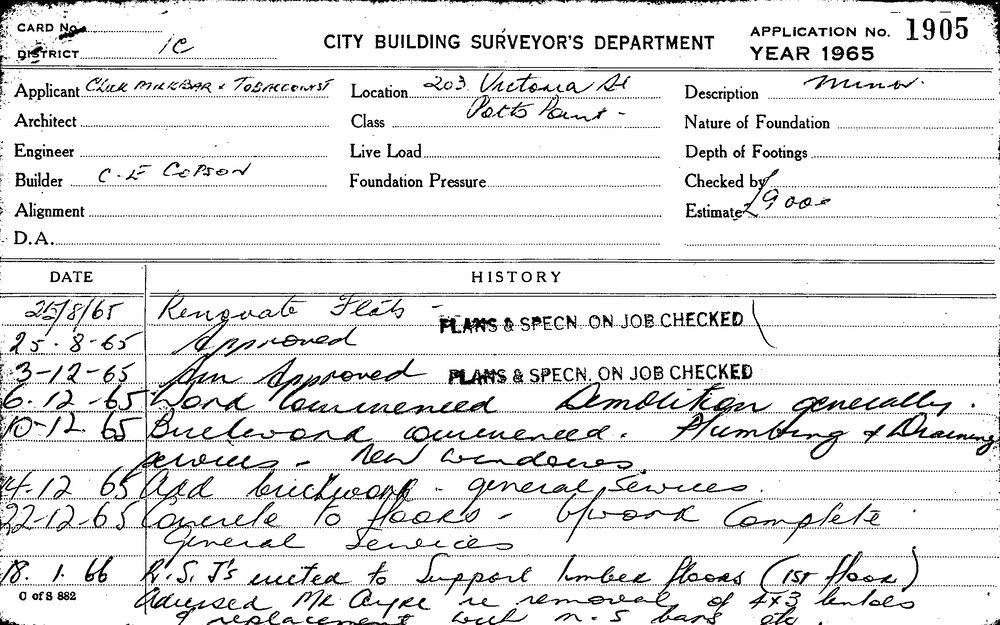 CARD No.
DISTRICT 1C
CITY BUILDING SURVEYOR'S DEPARTMENT
APPLICATION No. 1905
YEAR 1965
Applicant MILKBAR & TOBACCONIST
Location 203 Victoria St
Potts Point -
Description Minor.
Architect
Class
Nature of Foundation
Engineer
Live Load
Depth of Footings
Builder C. E COPSON
Foundation Pressure
Checked by
Alignment
Estimate £9000
D.A.
DATE HISTORY
25/8/65 Renovate Flats -
PLANS & SPECN. ON JOB CHECKED
25.8-65 Approved
3-12-65 Am Approved PLANS & SPECN. ON JOB CHECKED
6.12-65 Work Commenced Demolition generally.
10-12 65 Brickwork commenced. Plumbing & Draining
services - New windows.
14-12 65 Add brickwork - general services.
22-12-65 Concrete to floors - b/work Complete
General Services
18. 1. 66 R.S.J's erected to Support timber floors (1st floor)
C of S 882
Advised Mr re removal of 4x3 lintols
& replacement with M.S bars etc